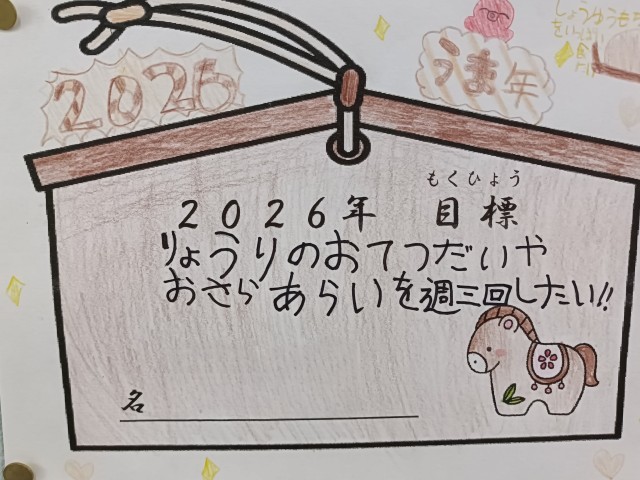 2026
うま年
もくひょう
2026年 目標
りょうりのおてつだいや
おさらあらいを週三回したい!!
名